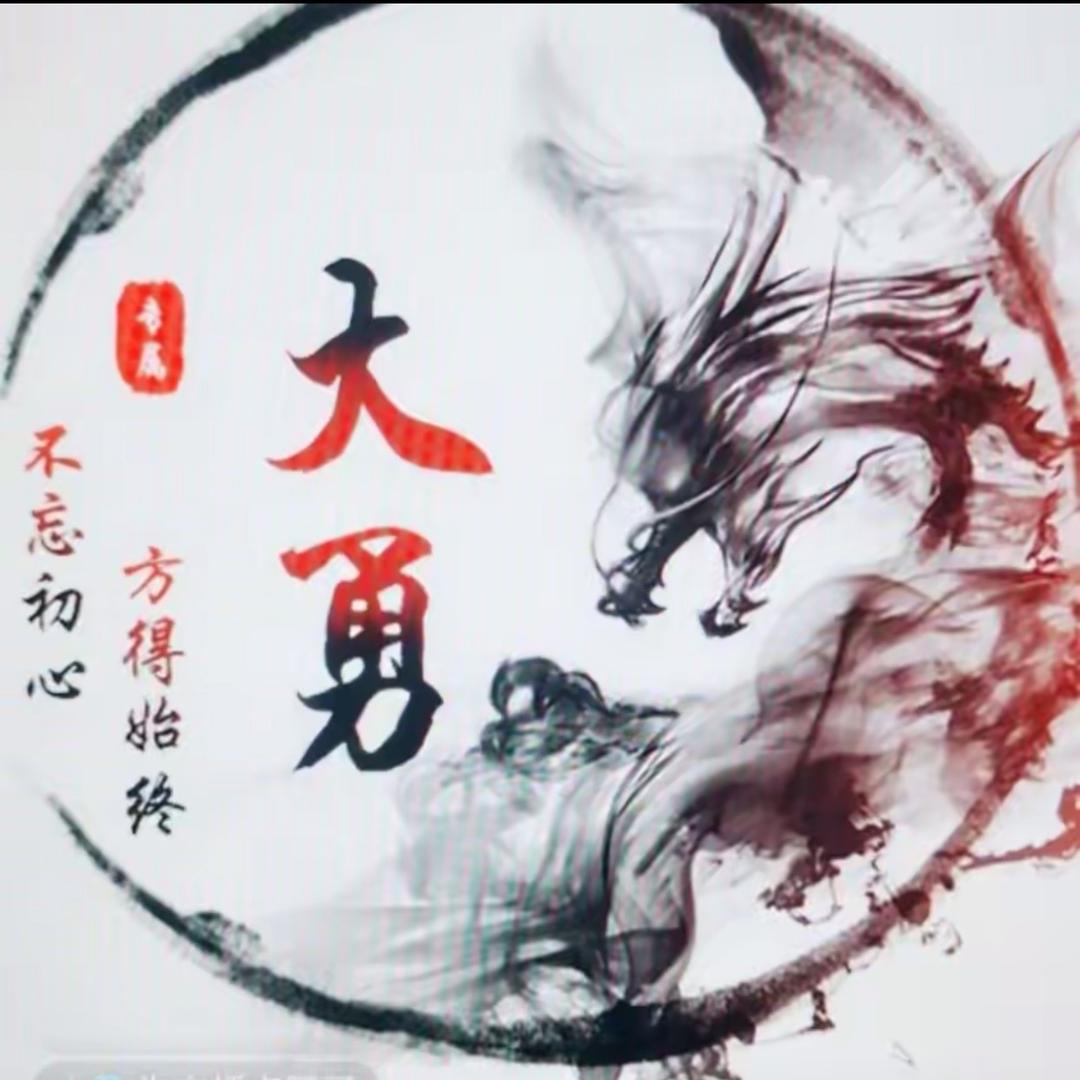 大勇
专属
方得始终
不忘初心